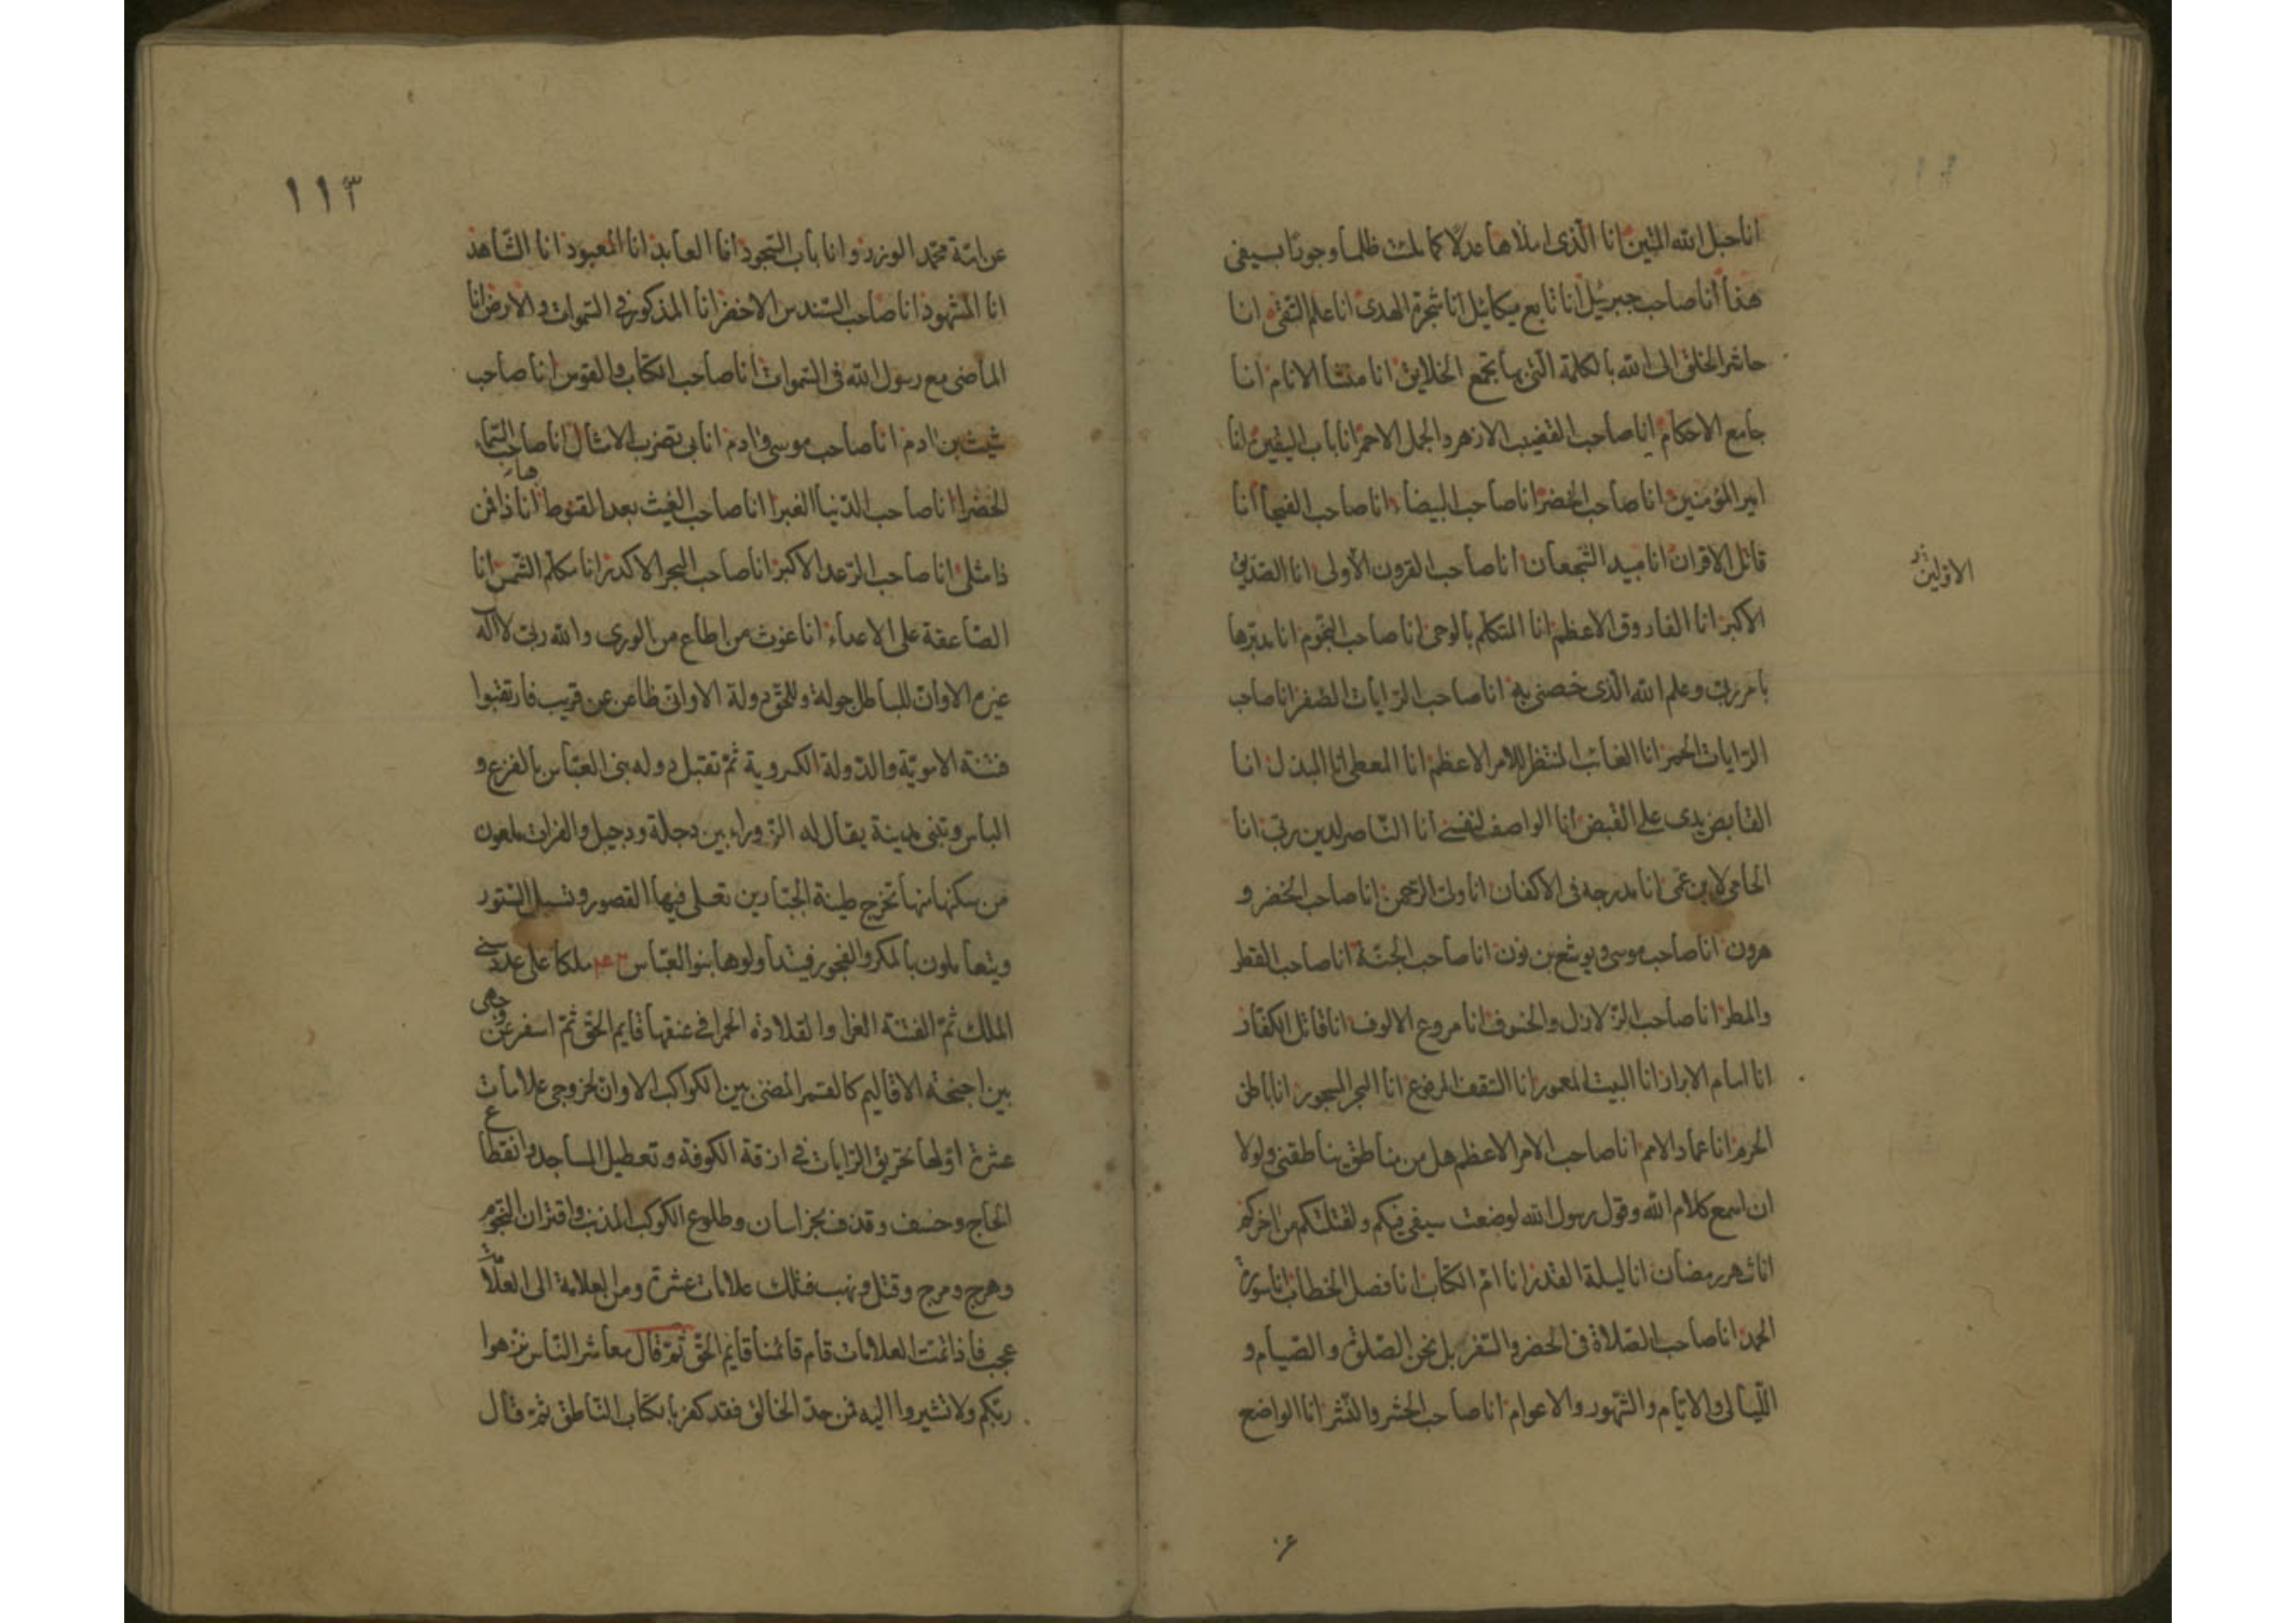 انا حبل الله المتين انا الّذى املاها عدلا كما ملئت ظلما وجورا بسيفى
هذا انا صاحب جبرئيل انا تابع ميكائيل انا شجرة الهدى انا علم التقى انا
حاشر الخلق الى الله بالكلمة الّتى بها تجمع الخلايق انا منشأ الانام انا
جامع الاحكام انا صاحب القضيب الازهر والجمل الاحمر انا باب اليقين انا
امير المؤمنين انا صاحب الخضر انا صاحب البيضاء انا صاحب الفيحا انا
قاتل الاقران انا مبيد الشجعان انا صاحب القرون الأولى انا الصدّيق
الاوّلين
الاكبر انا الفاروق الاعظم انا المتكلّم بالوحى انا صاحب النجوم انا مدبّرها
بامر ربّى وعلم الله الّذى خصنى به انا صاحب الرّايات الصّفر انا صاحب
الرّايات الحمر انا الغائب المنتظر للامر الاعظم انا المعطى انا المبذل انا
القابض يدى على القبض انا الواصف لنفسى انا النّاصر لدين ربّى انا
الحامى لابن عمّى انا مدرجه فى الاكفان انا ولىّ الرّحمن انا صاحب الخضر و
هرون انا صاحب موسى ويوشع بن نون انا صاحب الجنّة انا صاحب القطر
والمطر انا صاحب الزّلازل والخسوف انا مروع الالوف انا قاتل الكفّار
انا امام الابرار انا البيت المعمور انا السّقف المرفوع انا البحر المسجور انا باطن
الحرم انا عماد الامم انا صاحب الامر الاعظم هل من ناطق يناطقنى ولولا
ان اسمع كلام الله وقول رسول الله لوضعت سيفى فيكم ولقتلتكم عن اخركم
انا شهر رمضان انا ليلة القدر انا امّ الكتاب انا فصل الخطاب انا سورة
الحمد انا صاحب الصّلاة فى الحضر والسّفر بل نحن الصّلوة والصّيام و
اللّيالى والايّام والشّهور والاعوام انا صاحب الحشر والنّشر انا الواضع
١١٣
عن امّة محمّد الوزر وانا باب السّجود انا العابد انا المعبود انا الشّاهد
انا المشهود انا صاحب السّندس الاخضر انا المذكور فى السّموات والارض انا
الماضى مع رسول الله فى السّموات انا صاحب الكتاب والقوس انا صاحب
شيث بن ادم انا صاحب موسى وادم انا بى تضرب الامثال انا صاحب السّماء
الخضرا انا صاحب الدّنيا الغبرا انا صاحب الغيث بعد القنوط ها انا ذا فمن
ذا مثلى انا صاحب الرّعد الاكبر انا صاحب البحر الاكدر انا مكلّم الشّمس انا
الصّاعقة على الاعداء انا غوث من اطاع من الورى والله ربّى لا اله
غيره الاوان للباطل جولة وللحقّ دولة الاوانى ظاعن عن قريب فارتقبوا
فتنة الامويّة والدّولة الكسروية ثمّ تقبل دوله بنى العبّاس بالفزع و
الباس وتبنى مدينة يقال له الزّوراء بين دجلة ودجيل والفرات ملعون
من سكنها منها تخرج طينة الجبّارين تعلى فيها القصور وتسبل السّتور
ويتعاملون بالمكر والفجور فيتداولوها بنو العبّاس ملكا على عدد سنى
الملك ثمّ الفتنة الغرا والقلادة الحمرا فى عنقها قايم الحقّ ثمّ اسفر عن وجهى
بين اجنحة الاقاليم كالقمر المضئ بين الكواكب الا وان لخروجى علامات
عشرة اوّلها تحريق الرّايات فى ازقة الكوفة وتعطيل المساجد وانقطاع
الحاج وخسف وقذف بخراسان وطلوع الكوكب المذنب واقتران النّجوم
وهرج ومرج وقتل ونهب فتلك علامات عشرة ومن العلامة الى العلامة
عجب فاذا تمّت العلامات قام قائمنا قايم الحقّ ثمّ قال معاشر النّاس نزّهوا
ربّكم ولا تشيروا اليه فمن حدّ الخالق فقد كفر بالكتاب النّاطق ثمّ قال